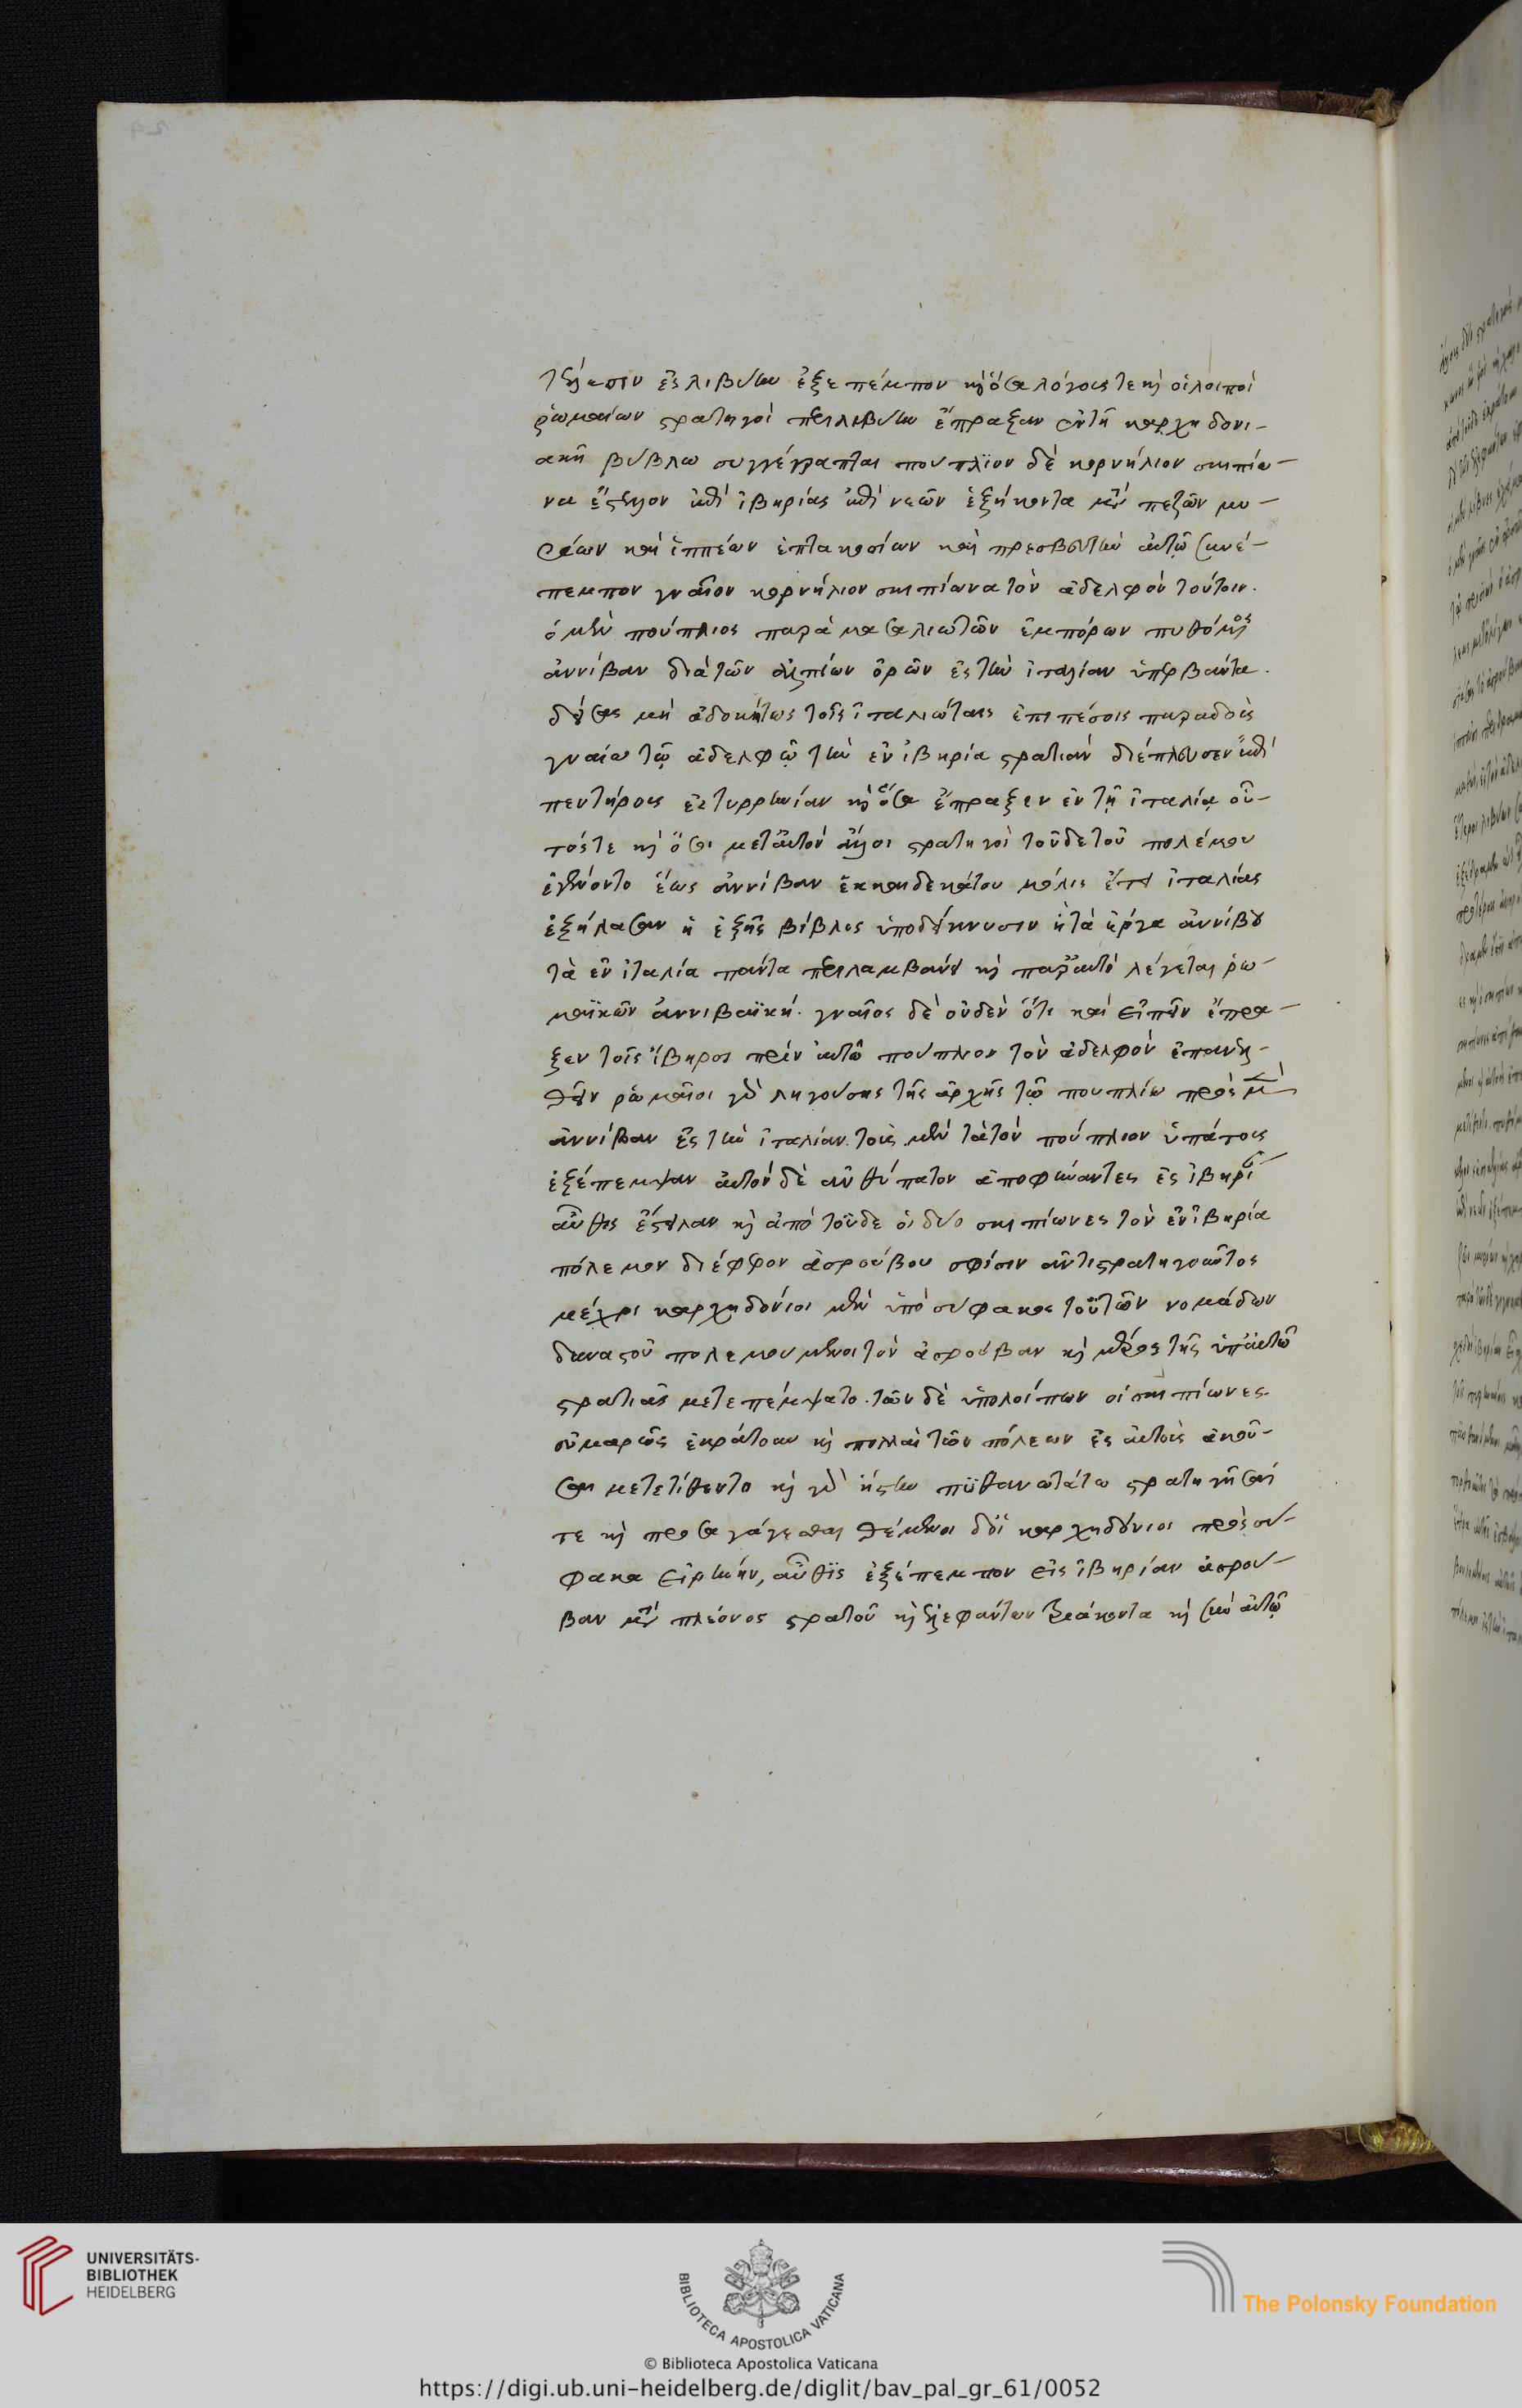 τήκοσιν ἐς λιβύην ἐξέπεμπον καὶ ὅσα λόγγος τε καὶ οἱ λοιποὶ
ῥωμαίων στρατηγοὶ περὶ λιβύην ἔπραξαν ἐν τῇ καρχηδονι-
ακῇ βύβλω συγγέγραπται πούπλϊον δὲ κορνήλιον σκιπίω-
να ἔστελλον ἐπὶ ἰβηρίας ἐπὶ νεῶν ἑξήκοντα μετὰ πεζῶν μυ-
ρίων καὶ ἱππέων ἑπτακοσίων καὶ πρεσβευτὴν αὐτῷ συνέ-
πεμπον γναῖον κορνήλιον σκιπίωνα τὸν ἀδελφὸν τούτοιν.
ὁ μὲν πούπλιος παρὰ μασσαλιωτῶν ἐμπόρων πυθόμενος
ἀννίβαν διὰ τῶν ἀλπίων ὀρῶν ἐς τὴν ἰταλίαν ὑπερβάντα.
δείσας μὴ ἀδοκήτως τοῖς ἰταλιώταις ἐπιπέσοις παραδοὺς
γναίω τῷ ἀδελφῷ τὴν ἐν ἰβηρία στρατιὰν διέπλευσεν ἐπὶ
πεντήρους ἐς τυρρηνίαν καὶ ὅσα ἔπραξεν ἐν τῇ ἰταλίᾳ οὗ-
τός τε καὶ ὅσοι μετ' αὐτὸν ἄλλοι στρατηγοὶ τοῦδε τοῦ πολέμου
ἐγένοντο ἕως ἀννίβαν ἑκκαιδεκάτου μόλις ἔτει ἰταλίας
ἐξήλασαν ἡ ἑξῆς βίβλος ὑποδείκνυσιν ἣ τὰ ἔργα ἀννίβου
τὰ ἐν ἰταλία πάντα περιλαμβάνει καὶ παρ' αὐτὸ λέγεται ῥω-
μαϊκῶν ἀννιβαϊκή. γναῖος δὲ οὐδὲν ὅτι καὶ εἰπεῖν ἔπρα-
ξεν τοῖς ἴβηροι πρὶν αὐτῶ πούπλιον τὸν ἀδελφὸν ἐπανελ-
θεῖν ῥωμαῖοι γὰρ ληγούσης τῆς ἀρχῆς τῷ πουπλίω πρὸς μὲν
ἀννίβαν ἐς τὴν ἰταλίαν τοὺς μετὰ τὸν πούπλιον ὑπάτους
ἐξέπεμψαν αὐτὸν δὲ ἀνθύπατον ἀποφήναντες ἐς ἰβηρί
αὖθις ἔστειλαν καὶ ἀπὸ τοῦδε οἱ δύο σκιπίωνες τὸν ἐν ἰβηρία
πόλεμον διέφερον ἀσρούβου σφίσιν ἀντιστρατηγοῦντος
μέχρι καρχηδόνιοι μὲν ὑπὸ σύφακος τοῦ τῶν νομάδων
δυνάστου πολεμούμενοι τὸν ἀσρούβαν καὶ μέρος τῆς ὑπ' αὐτῷ
στρατιᾶς μετεπέμψατο. τῶν δὲ ὑπολοίπων οἱ σκιπίωνες
εὐμαρῶς ἐκράτουν καὶ πολλαὶ τῶν πόλεων ἐς αὐτοὺς ἀκοῦ-
σαι μετετίθεντο καὶ γὰρ ἤστην πϊθανωτάτω στρατηγῆσαί
τε καὶ προσαγάγεσθαι θέμενοι δ' οἱ καρχηδόνιοι πρὸς σύ-
φακα εἰρήνην, αὖθϊς ἐξέπεμπον εἰς ἰβηρίαν ἀσρού-
βαν μετὰ πλέονος στρατοῦ καὶ ἐλεφάντων τριάκοντα καὶ σὺν αὐτῷ
UNIVERSITÄTS-
BIBLIOTHEK
HEIDELBERG
BIBLIOTECA APOSTOLICA VATICANA
The Polonsky Foundation
© Biblioteca Apostolica Vaticana
https://digi.ub.uni-heidelberg.de/diglit/bav_pal_gr_61/0052